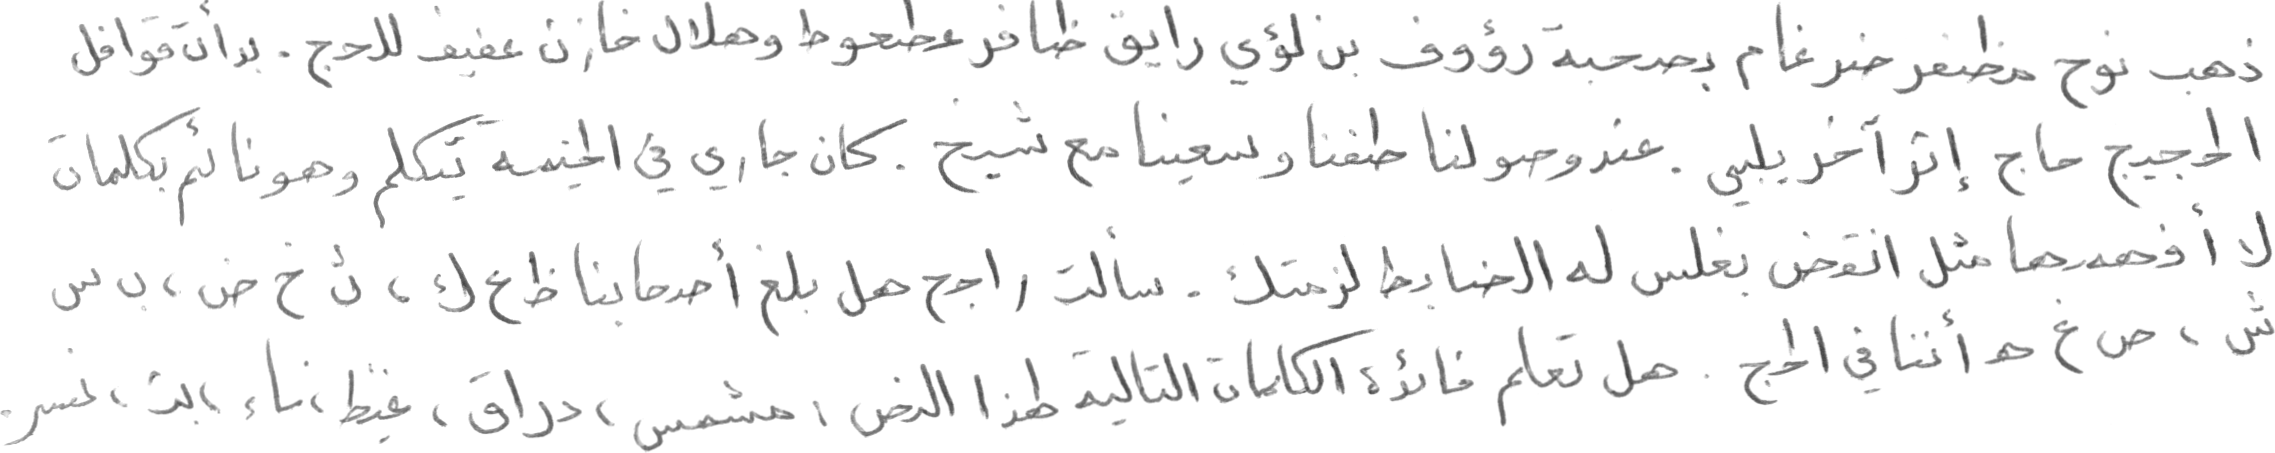 ذهب نوح مظفر ضرغام بصحبة رؤوف بن لؤي رايق ظافر عطعوط وهلال خازن عفيف للحج. بدأت قوافل
الحجيج حاج إثر آخر يلبي. عند وصولنا طفنا وسعينا مع شيخ. كان جاري في الخيمة يتكلم وهو نائم بكلمات
لا أفهمها مثل انقض بغلس له الضابط لزمتك. سألت راجح هل بلغ أصحابنا ظ ع ك، ئ خ ض، ب س
ش، ص غ ه أننا في الحج. هل تعلم فائدة الكلمات التالية لهذا النص: مشمس، دراق، غيظ، ناء، بث، نسر.